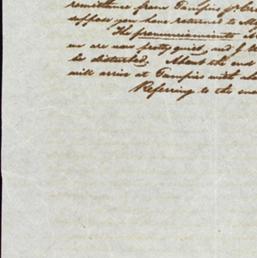 remittance from Tampico pr.
suppose you have returned to
The pronunciamiento
we are now pretty quiet, and I
be disturbed. About the end
will arrive at Tampico with
Referring to the